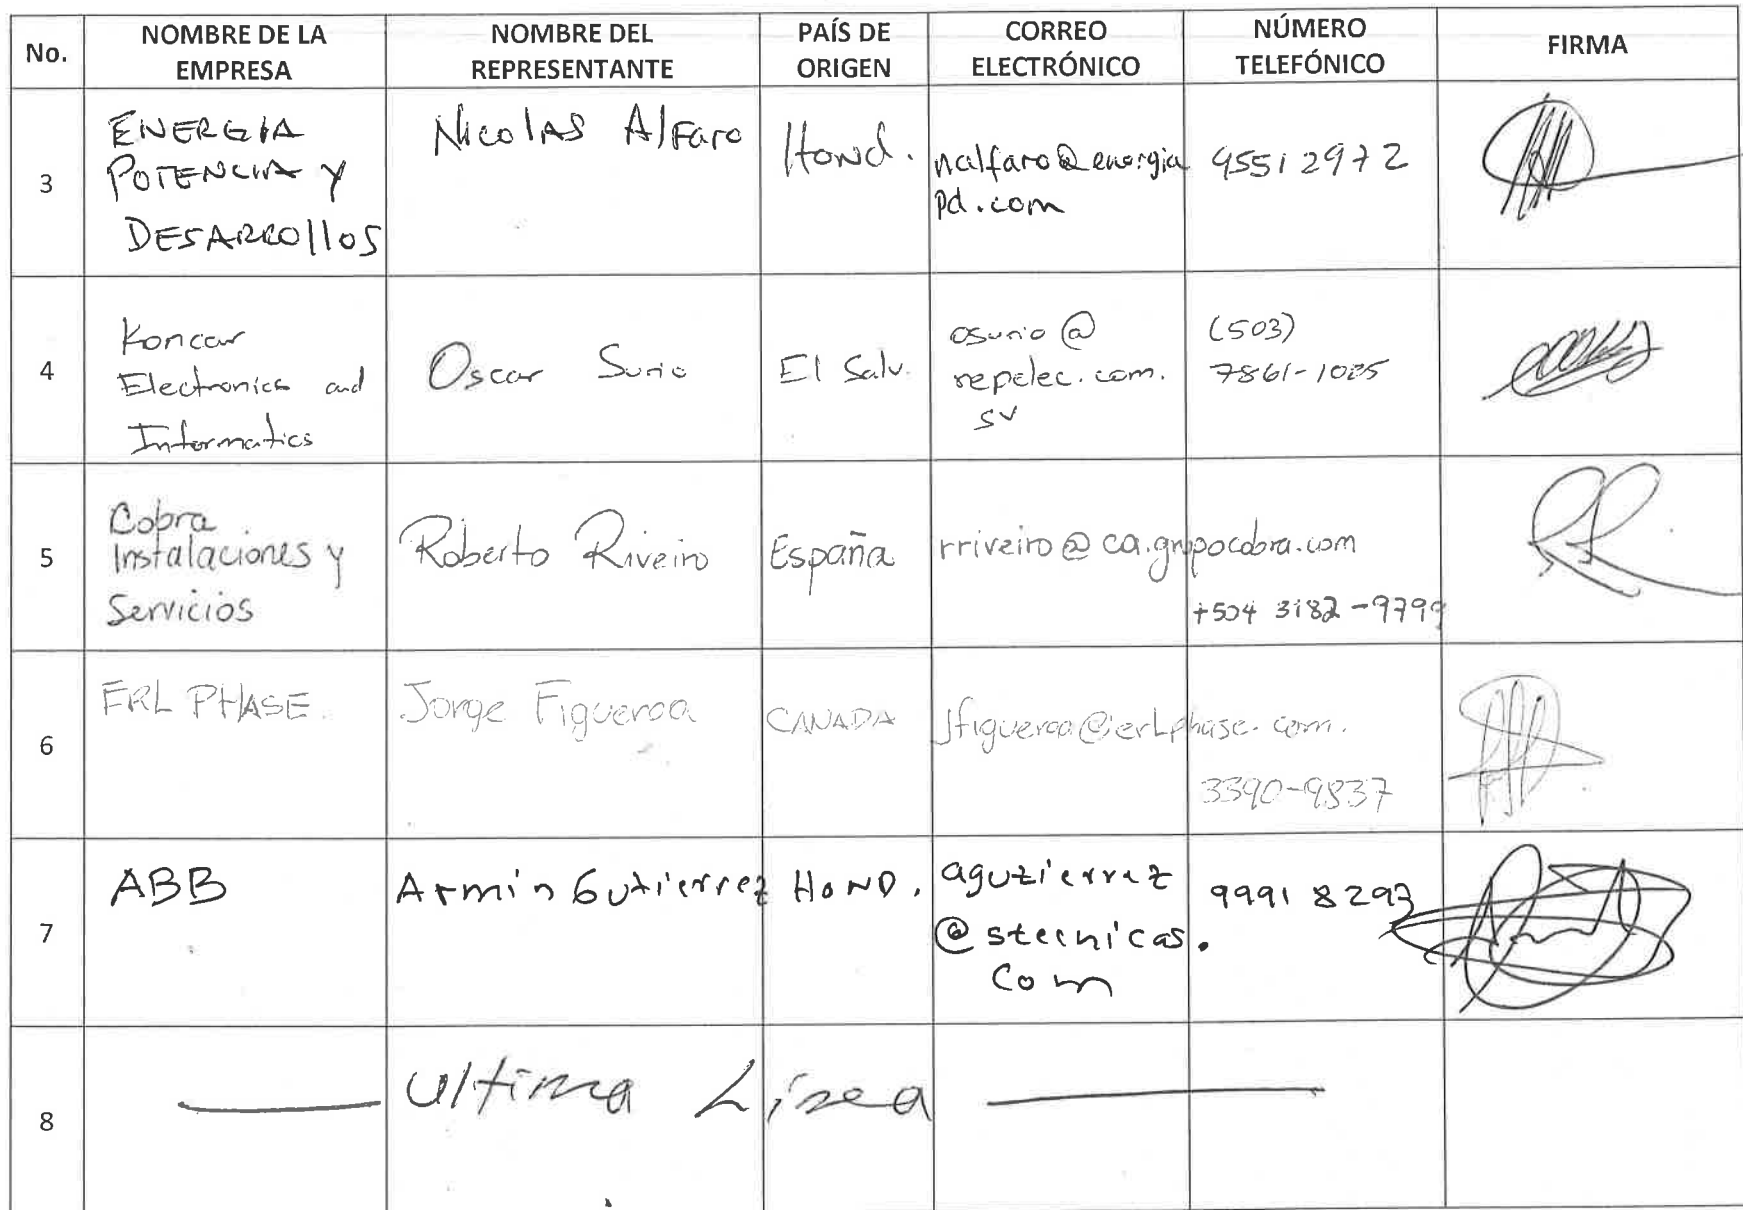 No.
NOMBRE DE LA
EMPRESA
NOMBRE DEL
REPRESENTANTE
PAÍS DE
ORIGEN
CORREO
ELECTRÓNICO
NÚMERO
TELEFÓNICO
FIRMA
3
ENERGIA
POTENCIA Y
DESARROllOS
NicolAS AlFaro
Hond.
nalfaro@energia
pd.com
95512972
4
Koncar
Electronics and
Informatics
Oscar Surio
El Salv.
osurio@
repelec.com.
sv
(503)
7861-1025
5
Cobra
Instalaciones y
Servicios
Roberto Riveiro
España
rriveiro@ca.grupocobra.com
+504 3182-9799
6
ERL PHASE.
Jorge Figueroa
CANADA
Jfigueroa@erLphase.com.
3390-9837
7
ABB
Armin Gutierrez
HoND.
agutierrez
@stecnicas.
com
9991 8293
8
Ultima Línea